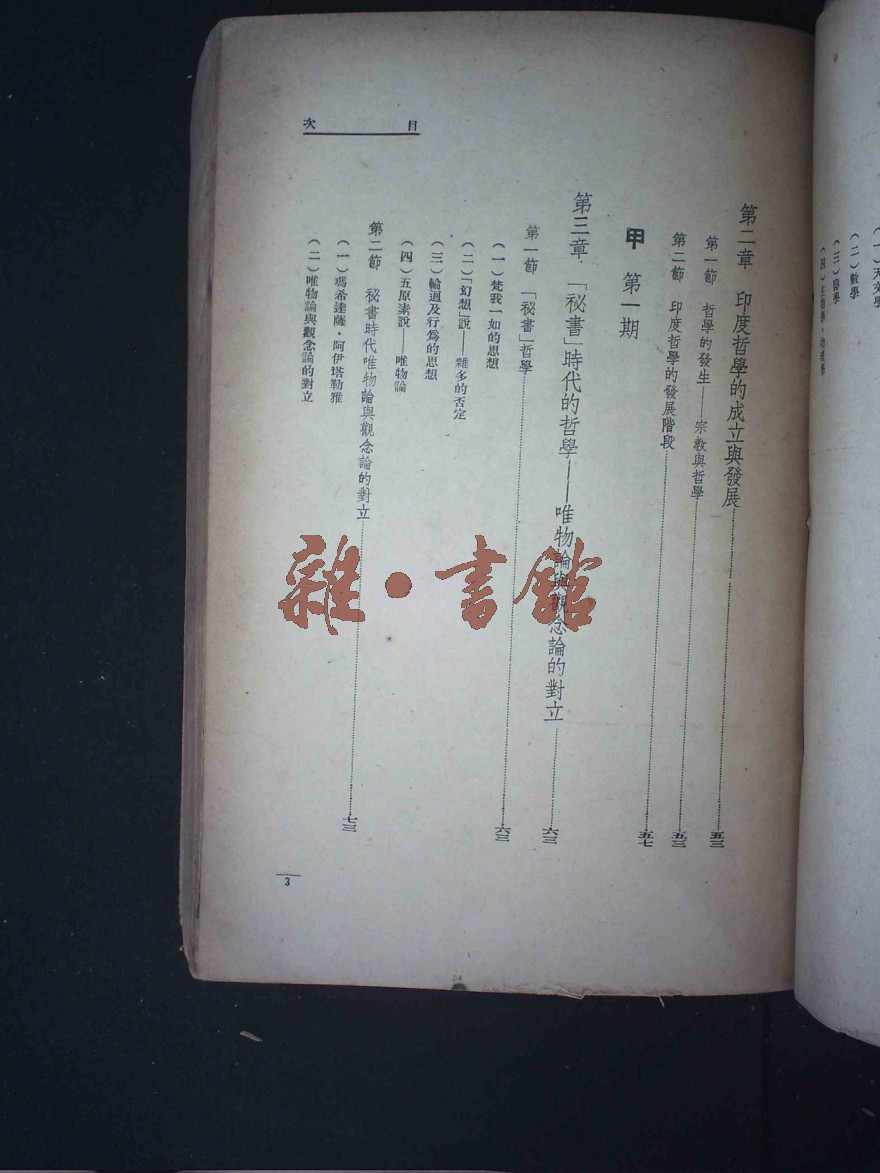 (一)天文學
(二)數學
(三)醫學
目次
第二章 印度哲學的成立與發展……五三
第一節 哲學的發生——宗教與哲學……五三
第二節 印度哲學的發展階段……五七
甲 第一期
第三章 「祕書」時代的哲學——唯物論與觀念論的對立……六三
第一節 「祕書」哲學……六三
(一)梵我一如的思想
(二)「幻想」說——雜多的否定
(三)輪迴及行為的思想
(四)五原素說——唯物論
第二節 祕書時代唯物論與觀念論的對立……七三
(一)瑪希達薩·阿伊塔勒雅
(二)唯物論與觀念論的對立
3
雜·書館